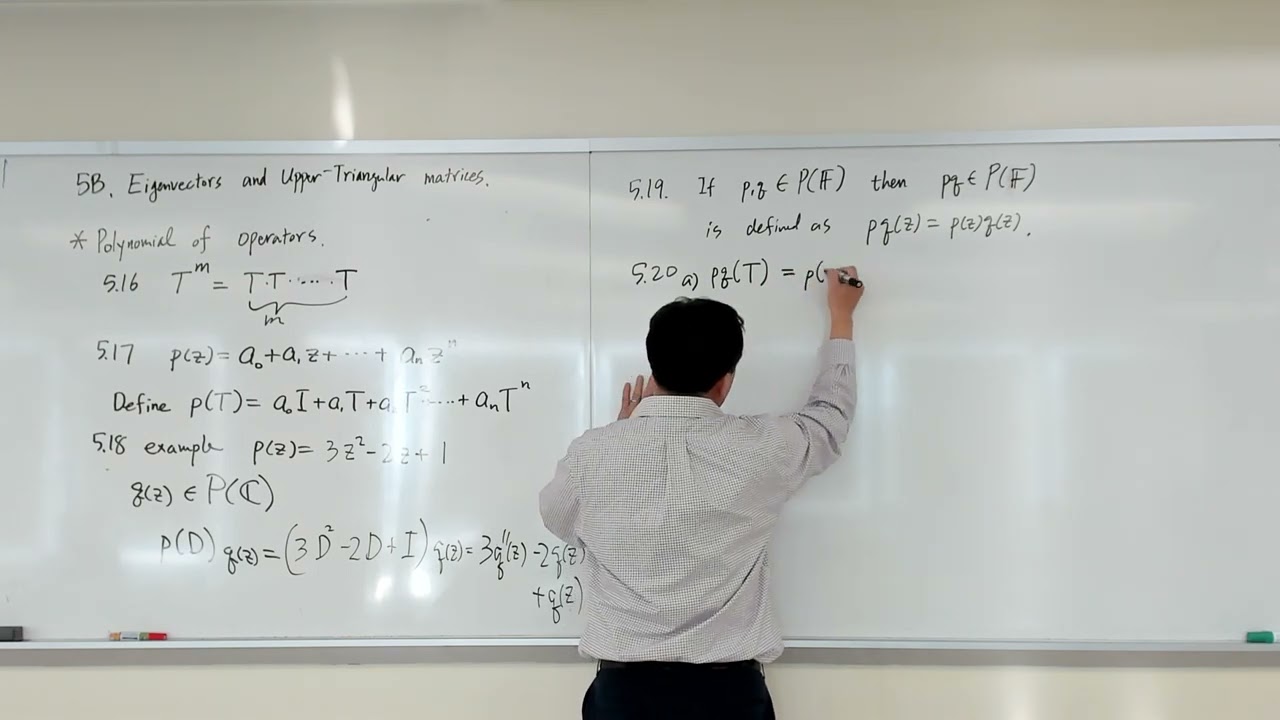 5B. Eigenvectors and Upper-Triangular matrices.
* Polynomial of operators.
5.16 T^m = T·T·····T
m
5.17 p(z) = a₀+a₁z+ ··· + aₙz^n
Define p(T) = a₀I+a₁T+a T²····+aₙT^n
5.18 example p(z) = 3z²-2z+1
q(z) ∈ P(ℂ)
p(D) q(z) = (3D²-2D+I) q(z) = 3q''(z) -2q(z)
+q(z)
5.19. If p,q ∈ P(𝔽) then pq ∈ P(𝔽)
is defined as pq(z) = p(z)q(z).
5.20 a) pq(T) = p(